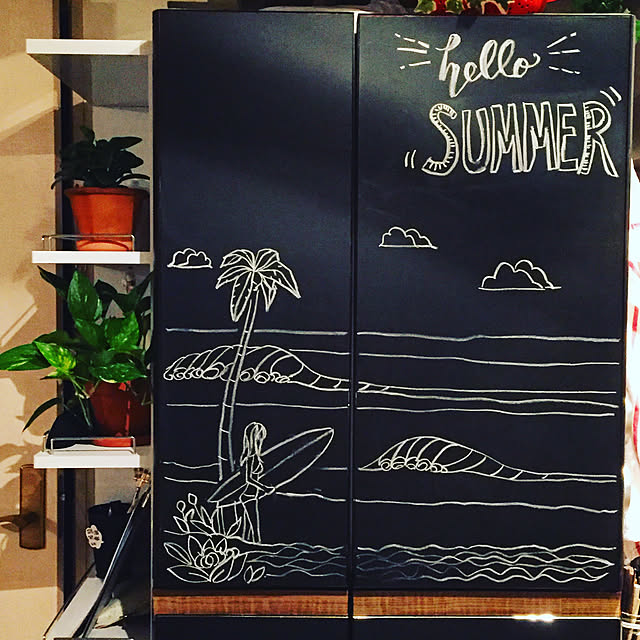 hello
SUMMER